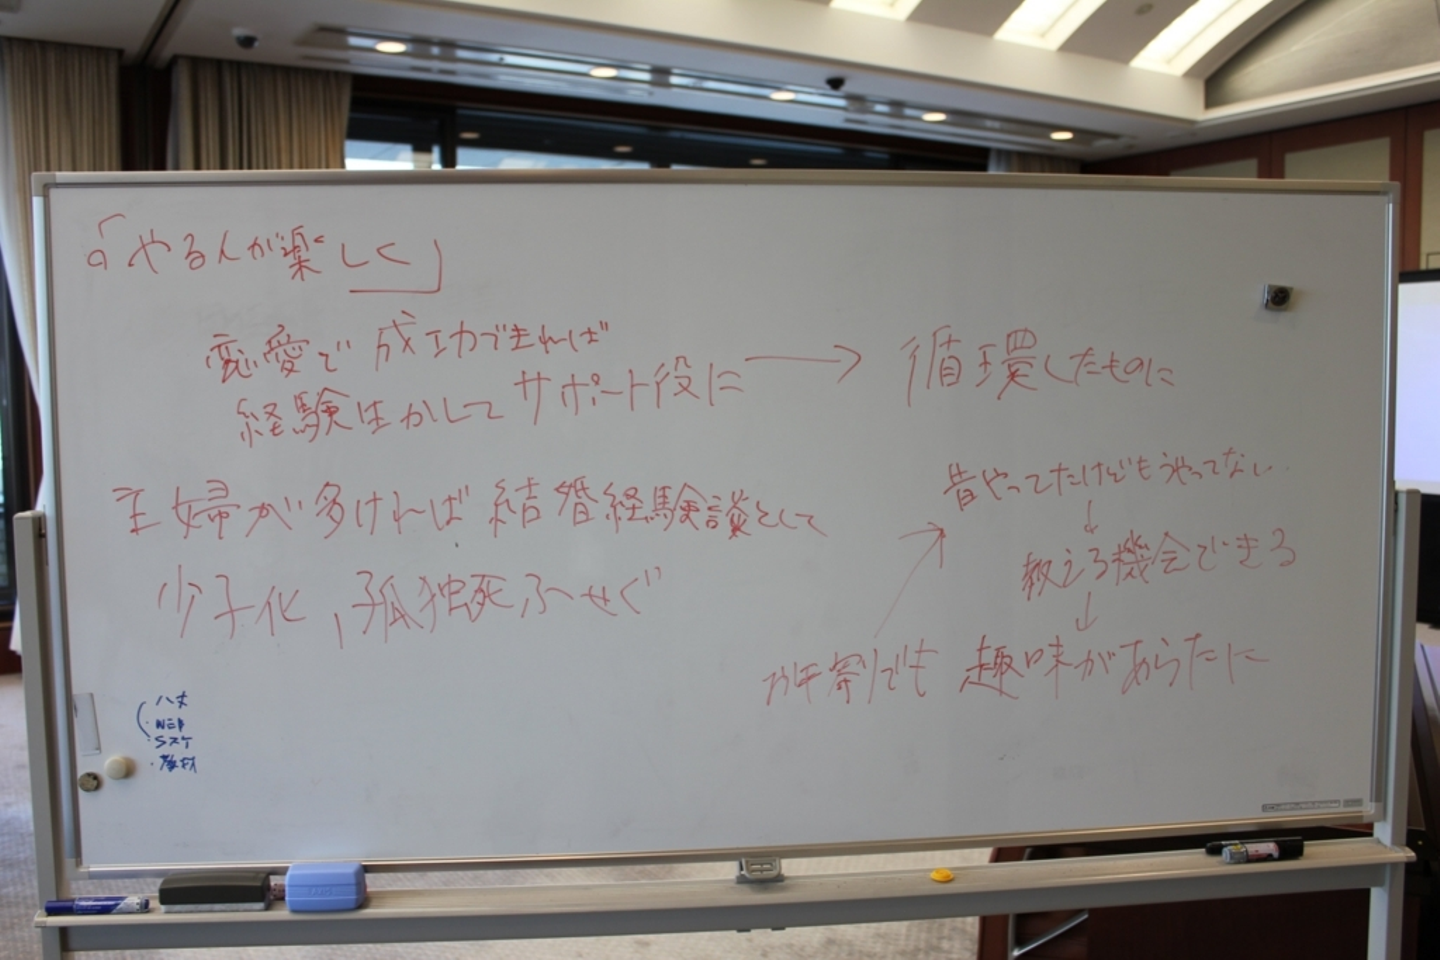 「やる人が楽しく」
恋愛で成功できれば
経験生かしてサポート役に → 循環したものに
主婦が多ければ結婚経験談として
少子化,孤独死ふせぐ
昔やってたけどもうやってない..
↓
教える機会できる
↓
趣味があらたに
・WEB
・教材